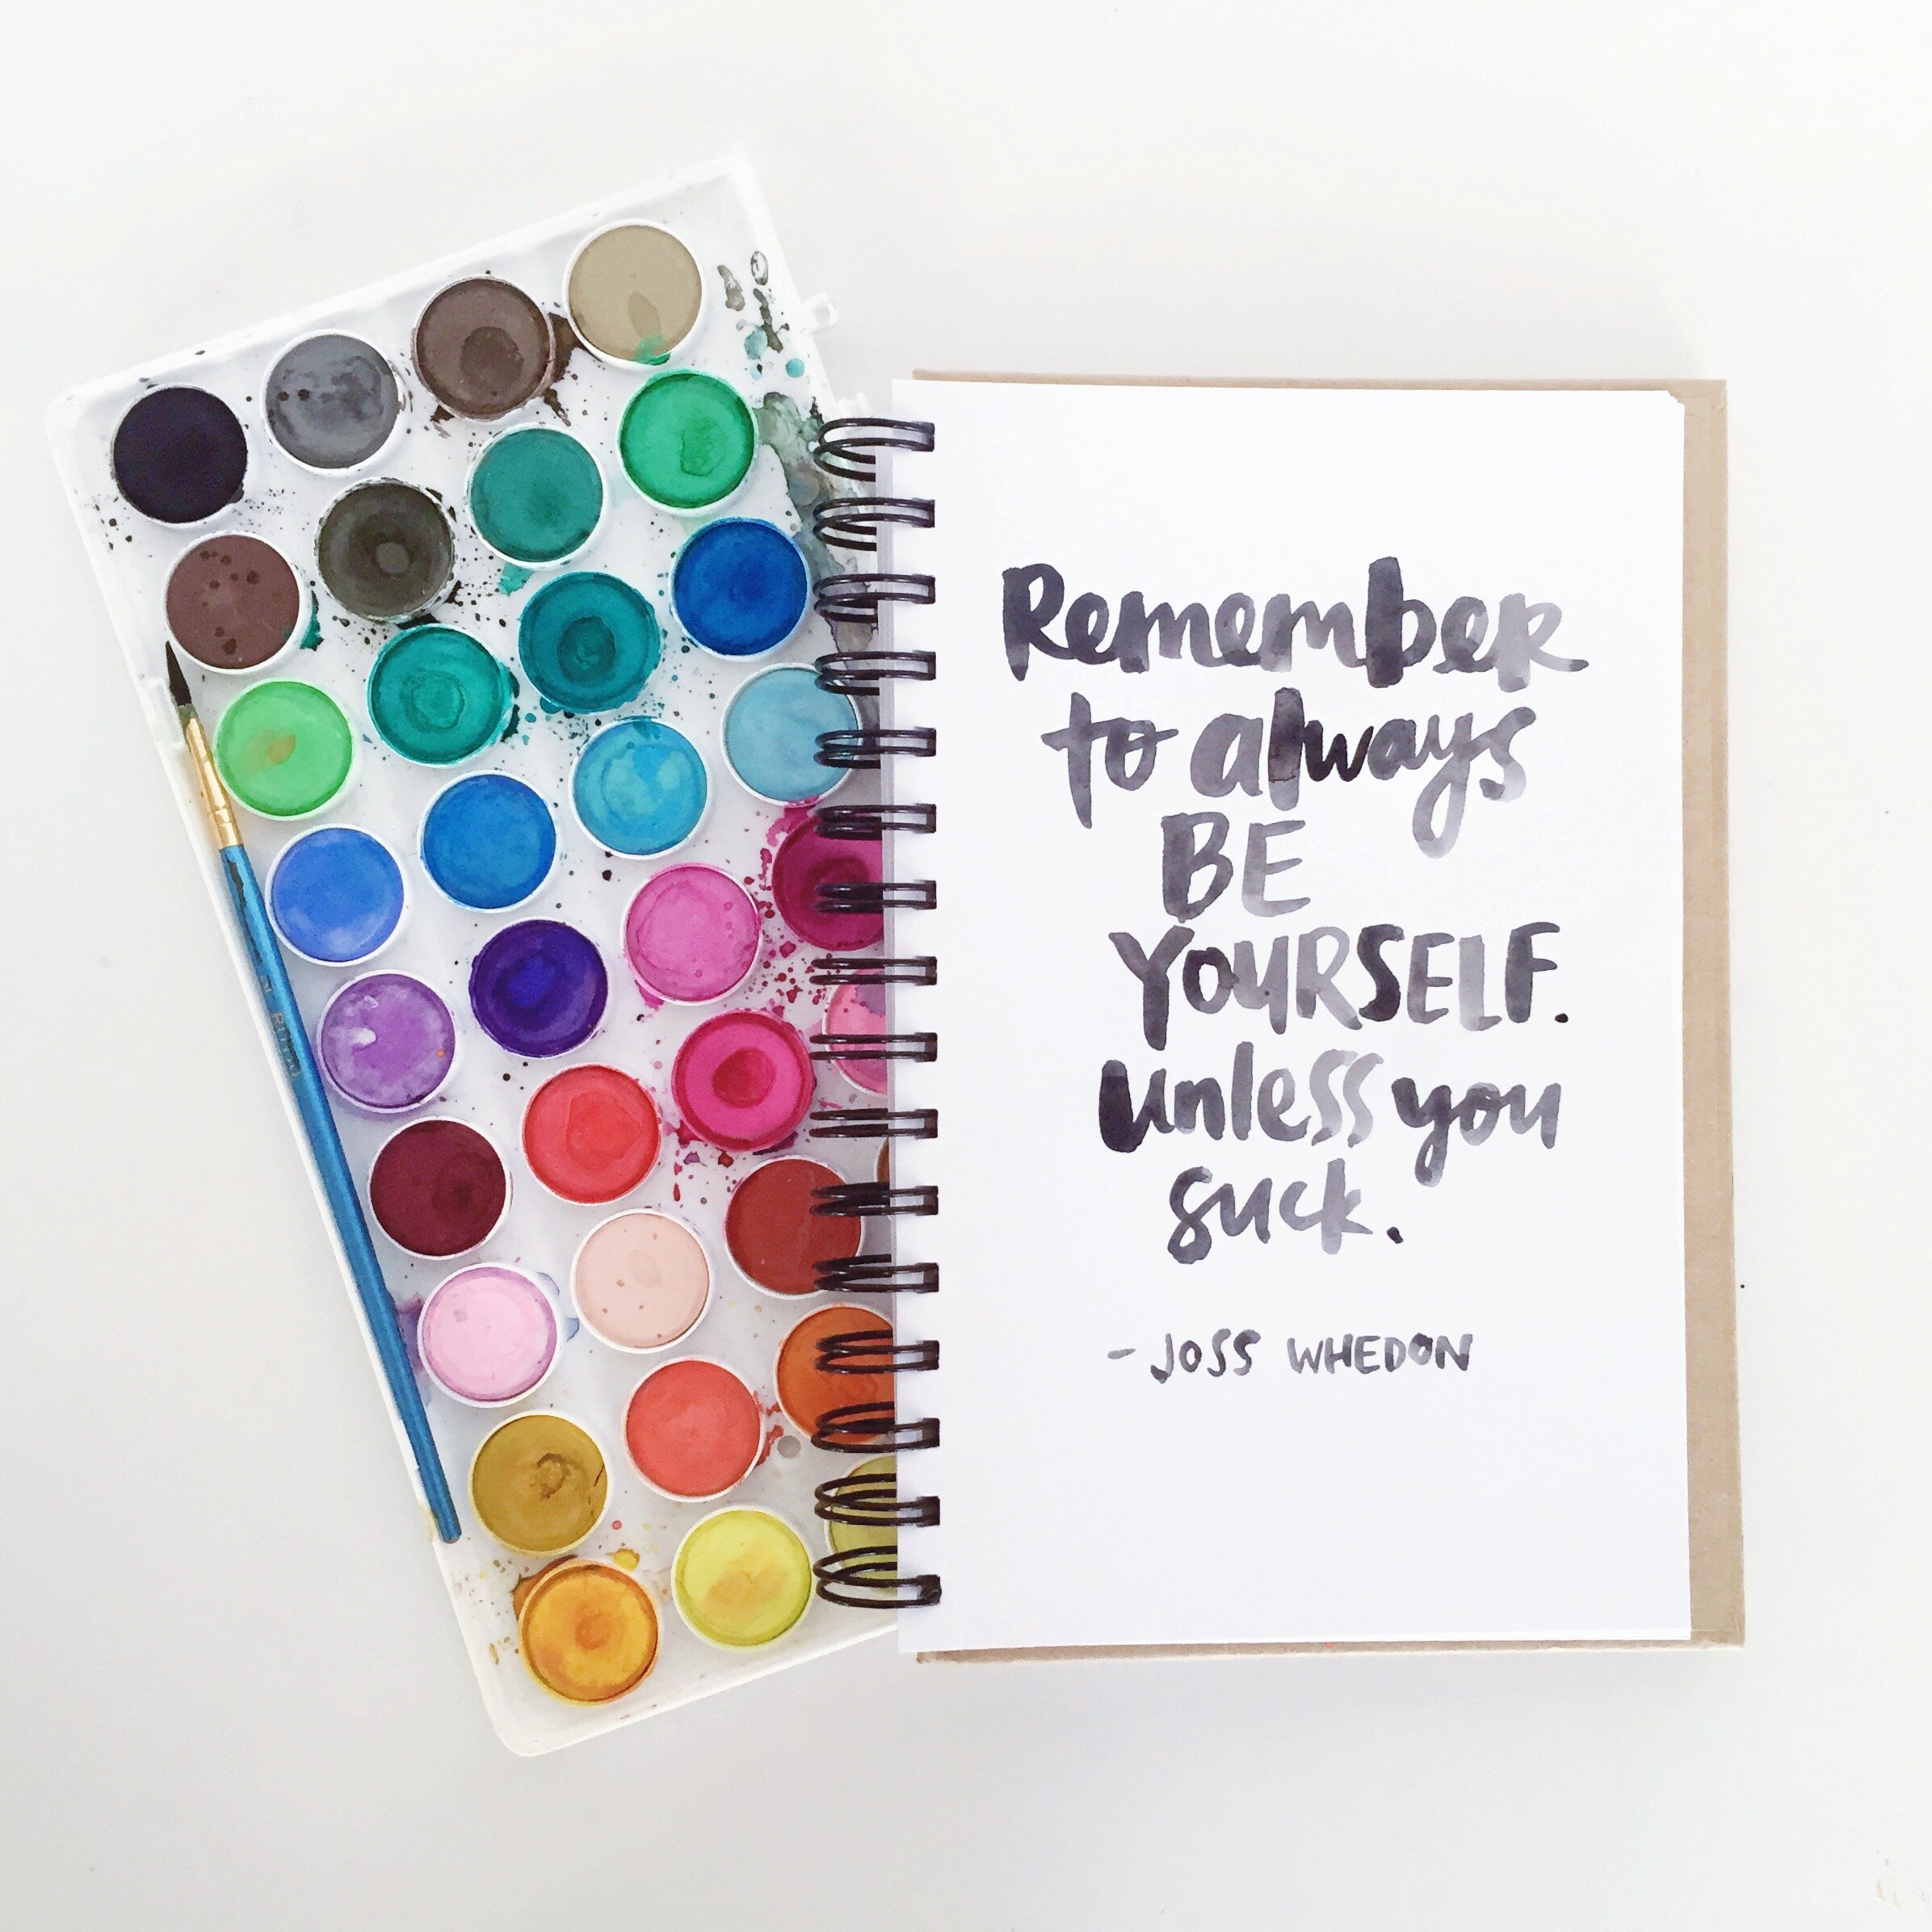 Remember
to always
BE
YOURSELF.
unless you
suck.
- JOSS WHEDON